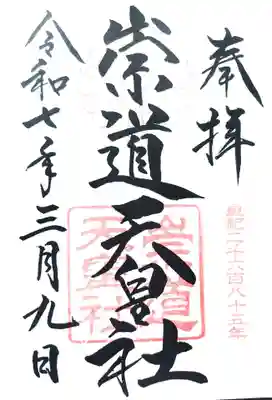 奉拝
皇紀二千六百八十五年
崇道天皇社
崇道天皇社
令和七年三月九日